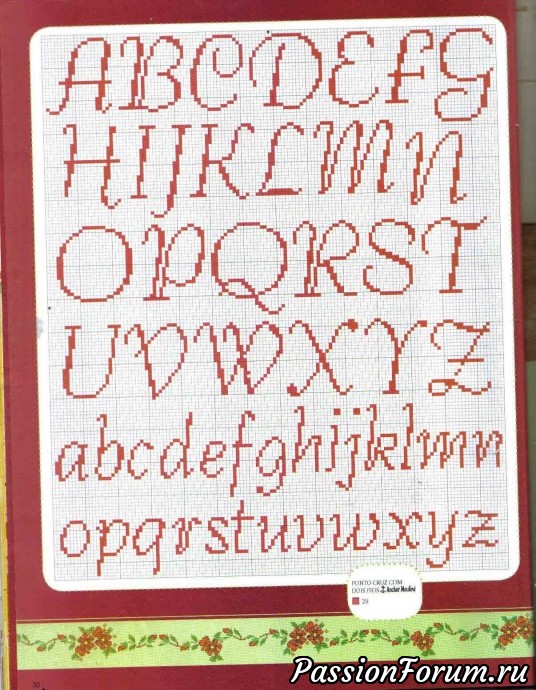 ABCDEFG
HIJKLMN
OPQRST
UVWXYZ
abcdefghijklmn
opqrstuvwxyz
PONTO CRUZ COM
DOIS FIOS Anchor Mouliné
29
30
PassionForum.ru